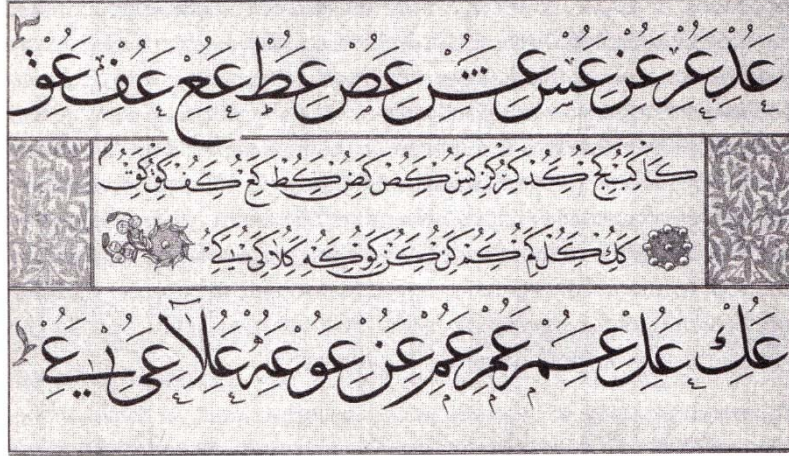 عد عر عن عس عش عص عط عع عف عق
كا كب كج كد كر كز كس كص كض كط كع كف كق كق
كك كل كم كم كن كن كو كه كلا كى كے
عك عل عم عم عم عن عو عه علا عى عے